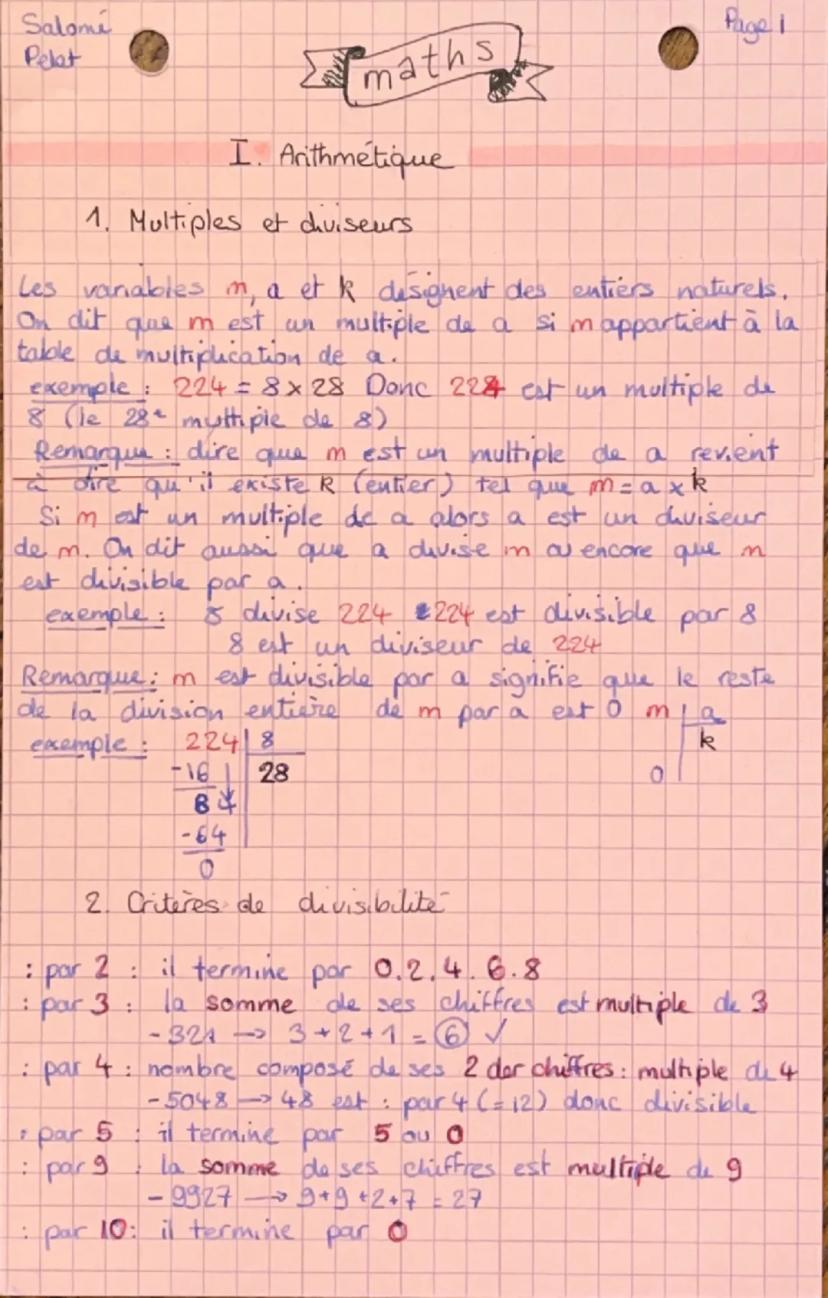 Salomé
Pelat
Page 1
maths
I. Arithmétique
1. Multiples et diviseurs
Les variables m, a et k désignent des entiers naturels.
On dit que m est un multiple de a si m appartient à la
table de multiplication de a.
exemple : 224 = 8 × 28 Donc 224 est un multiple de
8 (le 28e multiple de 8)
Remarque : dire que m est un multiple de a revient
à dire qu'il existe k (entier) tel que m = a × k
Si m est un multiple de a alors a est un diviseur
de m. On dit aussi que a divise m ou encore que m
est divisible par a.
exemple : 8 divise 224 224 est divisible par 8
8 est un diviseur de 224
Remarque : m est divisible par a signifie que le reste
de la division entière de m par a est 0 m a
exemple : 224 8 k
-16 28 0
64
-64
0
2. Critères de divisibilité
: par 2 : il termine par 0.2.4.6.8
: par 3 : la somme de ses chiffres est multiple de 3
- 321 → 3+2+1 = 6 ✓
: par 4 : nombre composé de ses 2 der chiffres : multiple de 4
- 5048 → 48 est : par 4 (=12) donc divisible
: par 5 : il termine par 5 ou 0
: par 9 : la somme de ses chiffres est multiple de 9
- 9927 → 9+9+2+7 = 27
: par 10 : il termine par 0